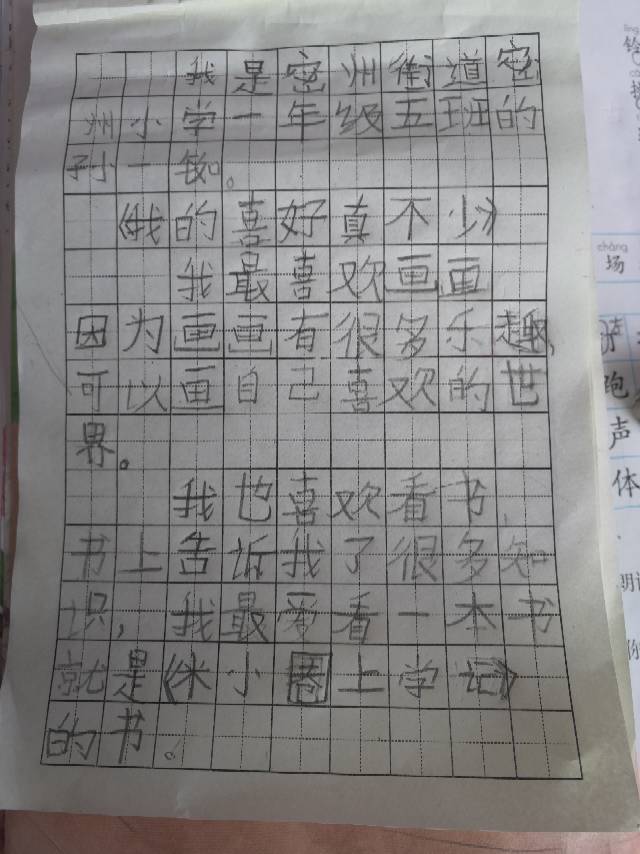 我是密州街道密
州小学一年级五班的
孙一铷。
《我的喜好真不少》
我最喜欢画画
因为画画有很多乐趣,
可以画自己喜欢的世
界。
我也喜欢看书,
书上告诉我了很多知
识,我最爱看一本书
就是《米小圈上学记》
的书。
chǎng
场
跑
声
体
明